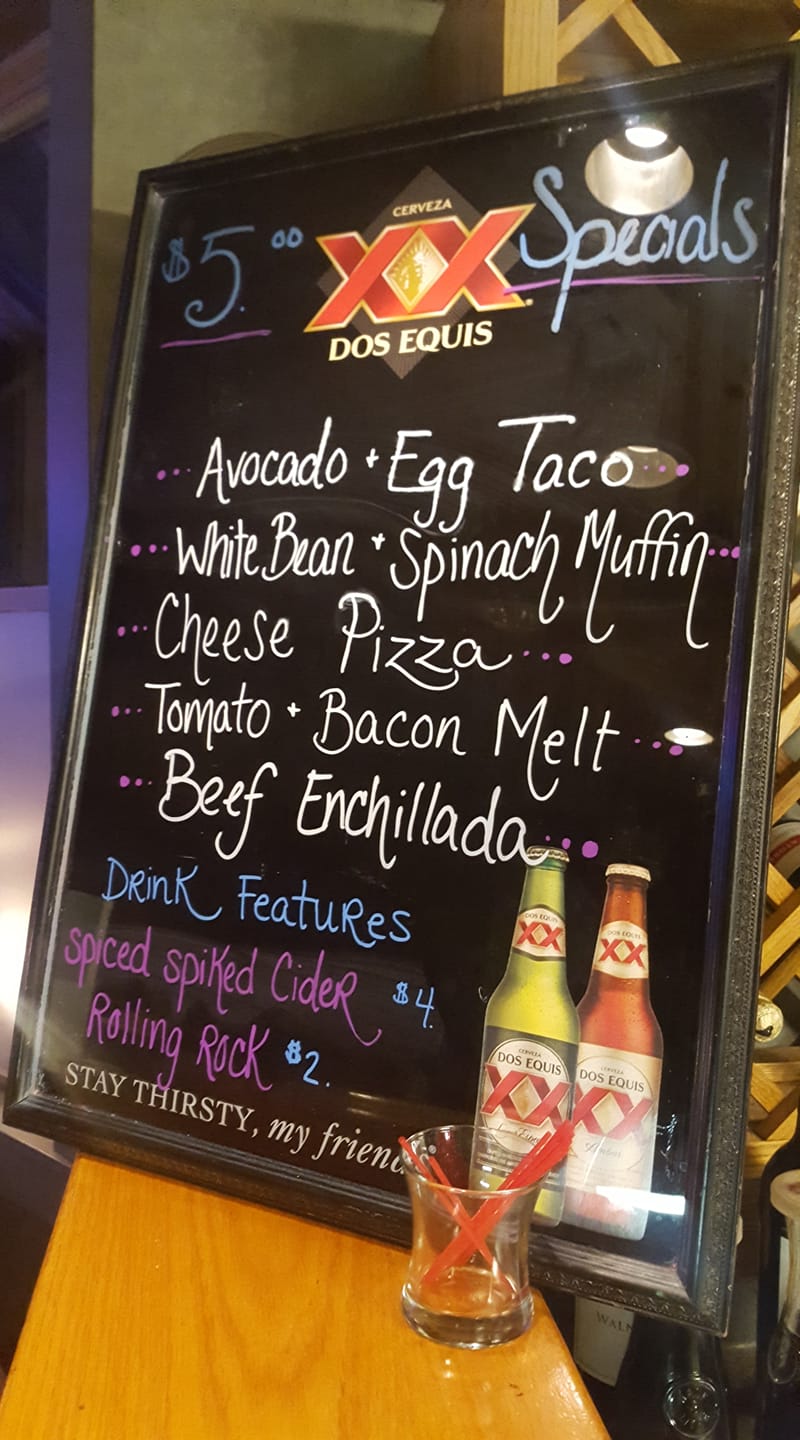 $5.00 Specials
CERVEZA
XX
DOS EQUIS
Avocado + Egg Taco
White Bean + Spinach Muffin
Cheese Pizza
Tomato + Bacon Melt
Beef Enchillada
Drink Features
Spiced Spiked Cider $4.
Rolling Rock $2.
STAY THIRSTY, my friends
DOS EQUIS
XX
DOS EQUIS
XX
CERVEZA
DOS EQUIS
XX
CERVEZA
DOS EQUIS
XX